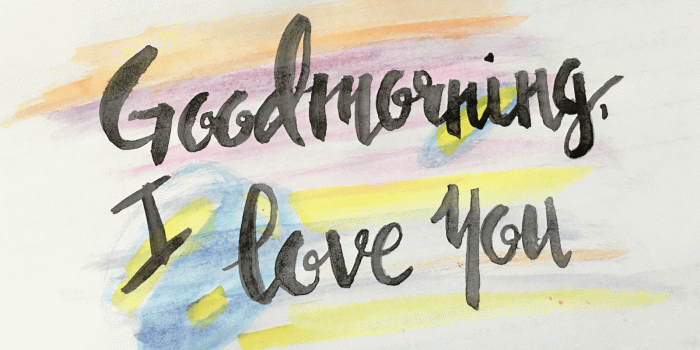 Goodmorning,
I love you